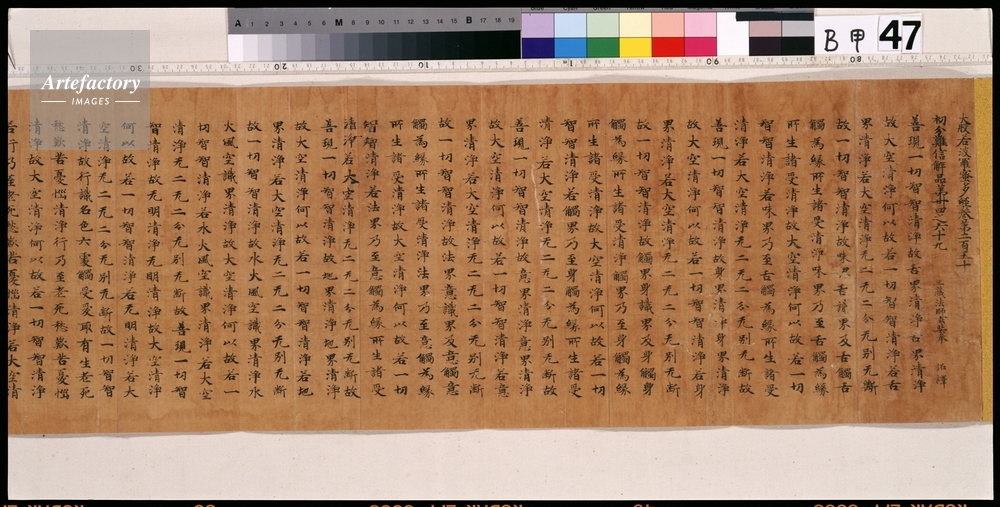 大般若波羅蜜多經卷第二百五十
初分難信解品第卅四之六十九
三藏法師玄奘奉 詔譯
善現一切智智清淨故舌界清淨舌界清淨
故大空清淨何以故若一切智智清淨若舌
界清淨若大空清淨无二无二分无別无斷
故一切智智清淨故味界舌識界及舌觸舌
觸為緣所生諸受清淨味界乃至舌觸為緣
所生諸受清淨故大空清淨何以故若一切
智智清淨若味界乃至舌觸為緣所生諸受
清淨若大空清淨无二无二分无別无斷故
善現一切智智清淨故身界清淨身界清淨
故大空清淨何以故若一切智智清淨若身
界清淨若大空清淨无二无二分无別无斷
故一切智智清淨故觸界身識界及身觸身
觸為緣所生諸受清淨觸界乃至身觸為緣
所生諸受清淨故大空清淨何以故若一切
智智清淨若觸界乃至身觸為緣所生諸受
清淨若大空清淨无二无二分无別无斷故
善現一切智智清淨故意界清淨意界清淨
故大空清淨何以故若一切智智清淨若意
界清淨若大空清淨无二无二分无別无斷
故一切智智清淨故法界意識界及意觸意
觸為緣所生諸受清淨法界乃至意觸為緣
所生諸受清淨故大空清淨何以故若一切
智智清淨若法界乃至意觸為緣所生諸受
清淨若大空清淨无二无二分无別无斷故
善現一切智智清淨故地界清淨地界清淨
故大空清淨何以故若一切智智清淨若地
界清淨若大空清淨无二无二分无別无斷
故一切智智清淨故水火風空識界清淨水
火風空識界清淨故大空清淨何以故若一
切智智清淨若水火風空識界清淨若大空
清淨无二无二分无別无斷故善現一切智
智清淨故无明清淨无明清淨故大空清淨
何以故若一切智智清淨若无明清淨若大
空清淨无二无二分无別无斷故一切智智
清淨故行識名色六處觸受愛取有生老死
愁歎苦憂惱清淨行乃至老死愁歎苦憂惱
清淨故大空清淨何以故若一切智智清淨
若行乃至老死愁歎苦憂惱清淨若大空清
B甲 47
Artefactory
IMAGES